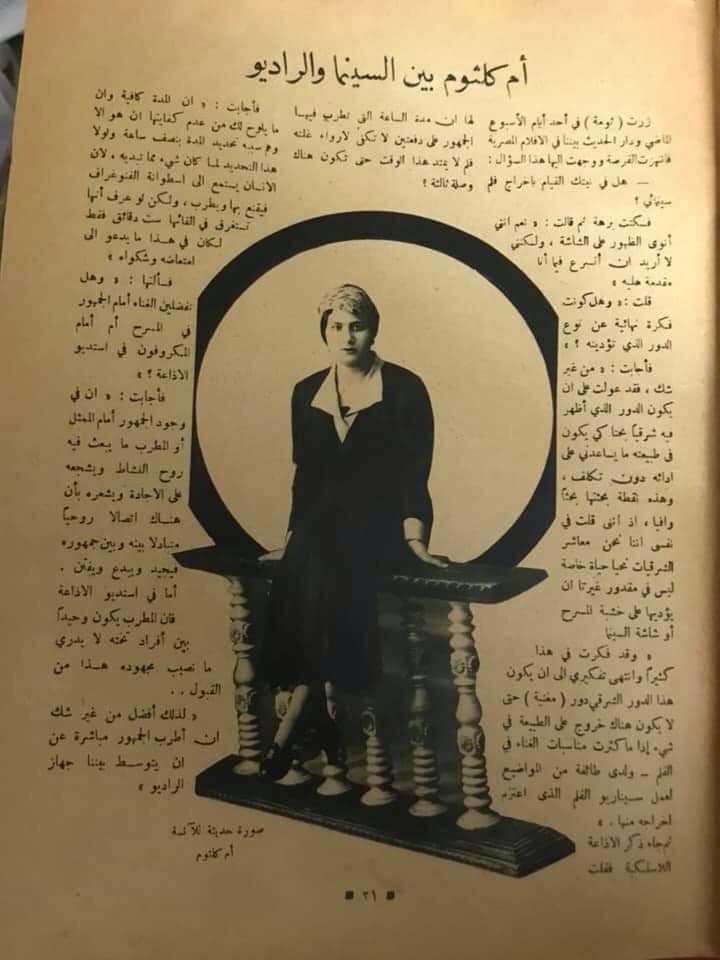 أم كلثوم بين السينما والراديو
زرت ( ثومة ) في أحد أيام الأسبوع
الماضي ودار الحديث بيننا في الافلام المصرية
فانتهزت الفرصة ووجهت اليها هذا السؤال :
— هل في نيتك القيام باخراج فلم
سينمائي ؟
فسكتت برهة ثم قالت : « نعم انني
أنوى الظهور على الشاشة ، ولكنني
لا أريد ان أتسرع فيما أنا
مقدمة عليه »
قلت : « وهل كونت
فكرة نهائية عن نوع
الدور الذي تؤدينه ؟ »
فأجابت : « من غير
شك ، فقد عولت على ان
يكون الدور الذي أظهر
فيه شرقياً بحتا كي يكون
في طبيعته ما يساعدني على
ادائه دون تكلف ،
وهذه نقطة بحثتها بحثاً
وافيا ، اذ أنني قلت في
نفسي اننا نحن معاشر
الشرقيات نحيا حياة خاصة
ليس في مقدور غيرنا ان
يؤديها على خشبة المسرح
أو شاشة السينما
« وقد فكرت في هذا
كثيراً وانتهى تفكيري الى ان يكون
هذا الدور الشرقي دور ( مغنية ) حتى
لا يكون هناك خروج على الطبيعة في
شيء إذا ما كثرت مناسبات الغناء في
الفلم — ولدى طائفة من المواضيع
لعمل سيناريو الفلم الذى اعتزم
اخراجه منها . »
ثم جاء ذكر الاذاعة
اللاسلكية فقلت
لها ان مدة الساعة التي تطرب فيها
الجمهور على دفعتين لا تكفي لارواء غلته
فلم لا يمتد هذا الوقت حتى تكون هناك
وصلة ثالثة ؟
فأجابت : « ان المدة كافية وان
ما يلوح لك من عدم كفايتها ان هو الا
وهم سببه تحديد المدة بنصف ساعة ولولا
هذا التحديد لما كان شيء مما تبديه ، لان
الانسان يستمع الى اسطوانة الفنوغراف
فيقنع بها ويطرب ، ولكن لو عرف أنها
تستغرق في القائها ست دقائق فقط
لكان في هذا ما يدعو الى
امتعاضه وشكواه »
فسألتها : « وهل
تفضلين الغناء أمام الجمهور
في المسرح أم أمام
المكروفون في استديو
الاذاعة ؟ »
فأجابت : « ان في
وجود الجمهور أمام الممثل
أو المطرب ما يبعث فيه
روح النشاط ويشجعه
على الاجادة ويشعره بأن
هناك اتصالا روحياً
متبادلا بينه وبين جمهوره
فيجيد ويبدع ويفتن .
أما في استديو الاذاعة
فان المطرب يكون وحيداً
بين أفراد تخته لا يدري
ما نصيب مجهوده هذا من
القبول . .
« لذلك أفضل من غير شك
ان أطرب الجمهور مباشرة عن
ان يتوسط بيننا جهاز
الراديو »
صورة حديثة للآنسة
أم كلثوم
٣١